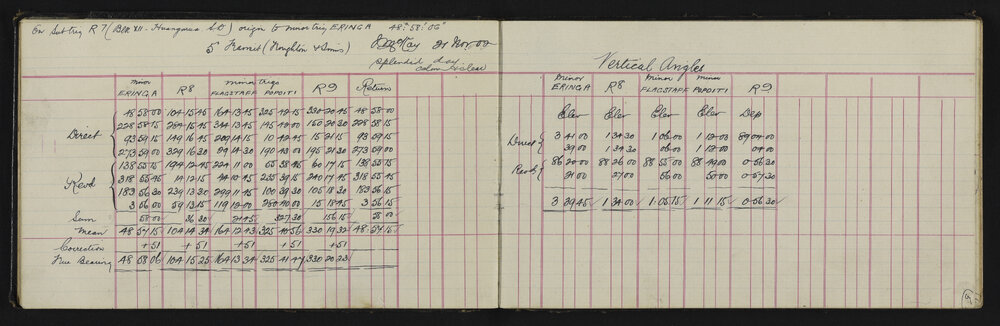 On Subtrig R7 (Blk XII - Huangarua S.D.) origin to minor trig ERINGA 48° 58' 06"
5" Transit (Troughton & Simms) 21 Nov. 00
Splendid day
calm & clear
Vertical Angles
minor ERINGA R8 minor trigs FLAGSTAFF POPOITI R9 Return
minor ERINGA R8 minor FLAGSTAFF minor POPOITI R9
Elev Elev Elev Elev Dep
Direct
48 58 00 104 15 45 164 13 45 325 42 15 330 20 45 48 58 00
228 58 15 284 15 45 344 13 45 145 42 00 150 20 30 228 58 15
93 59 15 149 16 45 209 14 15 10 42 45 15 21 15 93 59 15
273 59 00 329 16 30 29 14 30 190 43 00 195 21 30 273 59 00
Revd
138 55 15 194 12 45 224 11 00 55 38 45 60 17 15 138 55 15
318 55 45 14 12 15 74 10 45 235 39 15 240 17 45 318 55 45
183 56 30 239 13 30 299 11 45 100 39 30 105 18 30 183 56 15
3 56 00 59 13 15 119 12 00 280 40 00 15 18 45 3 56 15
Sum 58 00 36 30 21 45 327 30 156 15 58 00
Mean 48 57 15 104 14 34 164 12 43 325 40 56 330 19 32 48 57 15
Correction +51 +51 +51 +51 +51
True Bearing 48 58 06 104 15 25 164 13 34 325 41 47 330 20 23
Direct
3 41 00 1 34 30 1 06 00 1 12 00 89 04 00
39 00 1 34 30 06 00 1 12 00 04 00
Revd
86 20 00 88 26 00 88 55 00 88 49 00 0 56 30
21 00 27 00 56 00 50 00 0 57 30
3 39 45 1 34 00 1 05 15 1 11 15 0 56 30